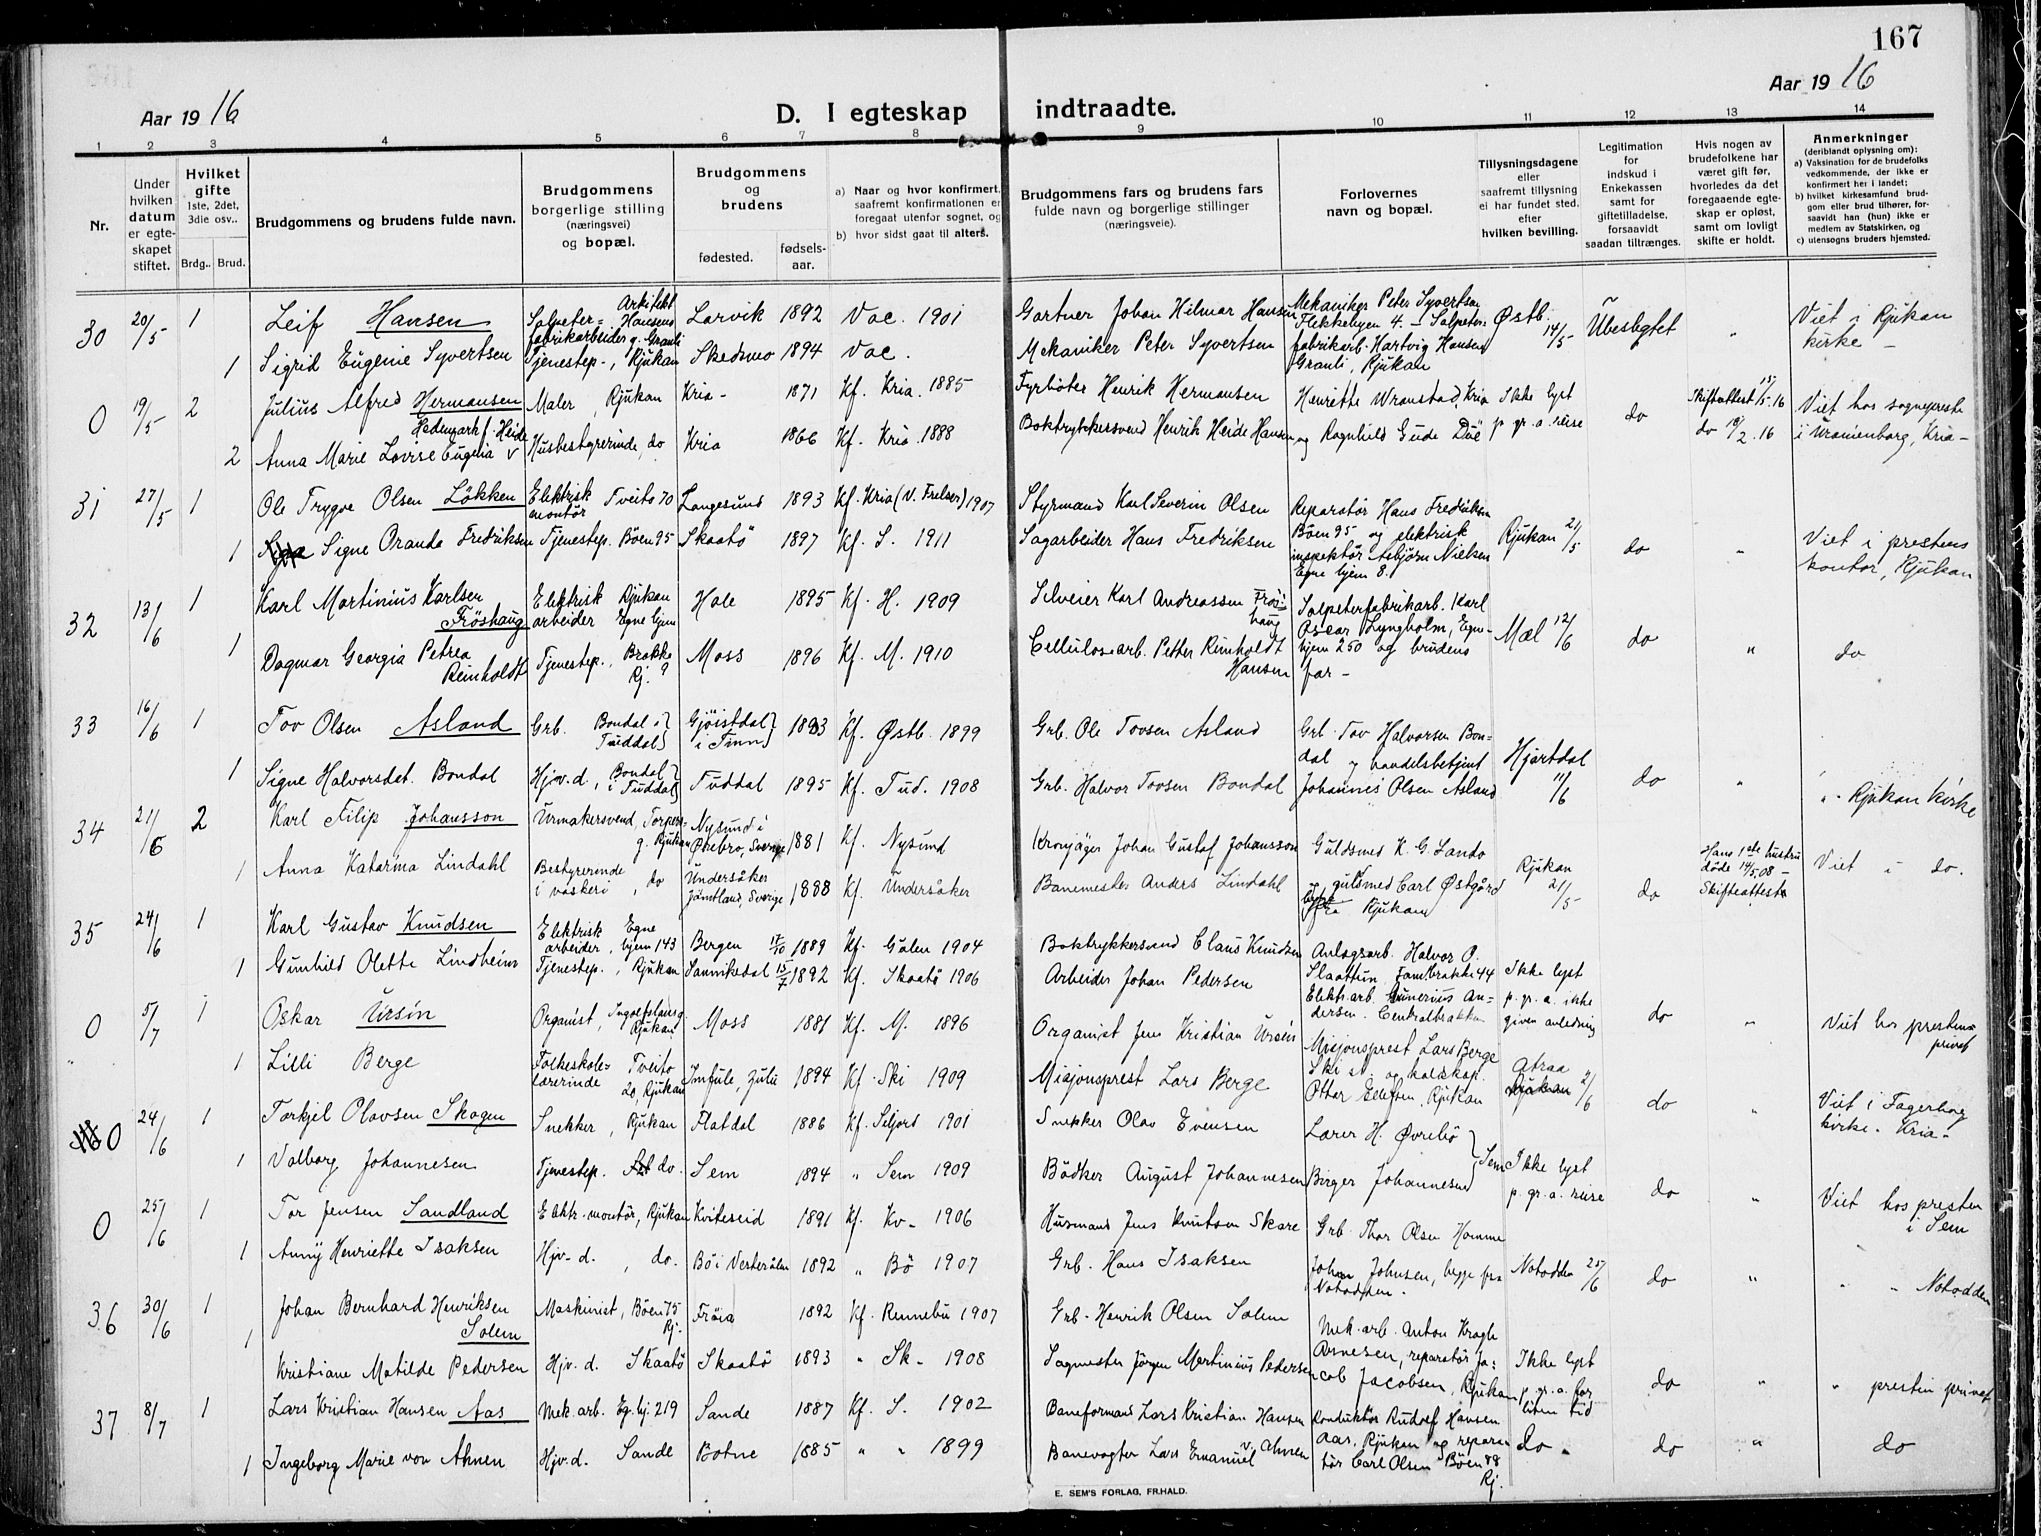 167
Aar 19 16
Aar 19 16
D. I egteskap indtraadte.
1 2 3 4 5 6 7 8 9 10 11 12 13 14
Nr.
Under hvilken datum er egteskapet stiftet.
Hvilket gifte 1ste, 2det, 3die osv..
Brdg.. Brud.
Brudgommens og brudens fulde navn.
Brudgommens borgerlige stilling (næringsvei) og bopæl.
Brudgommens og brudens
fødested. fødsels-aar.
a) Naar og hvor konfirmert, saafremt konfirmationen er foregaat utenfor sognet, og
b) hvor sidst gaat til alters.
Brudgommens fars og brudens fars fulde navn og borgerlige stillinger (næringsveie).
Forlovernes navn og bopæl.
Tillysningsdagene eller saafremt tillysning ei har fundet sted, efter hvilken bevilling.
Legitimation for indskud i Enkekassen samt for giftetilladelse, forsaavidt saadan tiltrænges.
Hvis nogen av brudefolkene har været gift før, hvorledes da det foregaaende egteskap er opløst, samt om lovligt skifte er holdt.
Anmerkninger (deriblandt oplysning om):
a) Vaksination for de brudefolks vedkommende, der ikke er konfirmert her i landet;
b) hvilket kirkesamfund brudgom eller brud tilhører, forsaavidt han (hun) ikke er medlem av Statskirken, og
c) utensogns bruders hjemsted.
30 20/5 1 Leif Hansen Salpeterfabrikarbeider Arkitekt Hansens g. Granli Larvik 1892 Vac. 1901 Gartner Johan Hilmar Hansen Mekaniker Peter Syvertsen Flekkebyen 4. – Salpeterfabrikarb. Hartvig Hansen Granli, Rjukan Østb. 14/5 Ubeslegtet " Viet i Rjukan kirke –
1 Sigrid Eugenie Syvertsen Tjenestep., Rjukan Skedsmo 1894 Vac. Mekaniker Peter Syvertsen
0 19/5 2 Julius Alfred Hermansen Maler, Rjukan Kria- 1871 Kf. Kria. 1885 Fyrbøter Henrik Hermansen Henriette Wranstad, Kria og Ragnhild Gude Døe Ikke lyst p. gr. a. reise do Skifteattest 15/5.16 Viet hos sogneprest i Uranienborg, Kria-
2 Anna Marie Lovise Eugenia Hedemark f. Heide Husbestyrerinde, do Kria 1866 Kf. Kria 1888 Boktrykkersvend Henrik Heide Hansen do 19/2.16
31 27/5 1 Ole Trygve Olsen Løkken Elektrisk montør Tveito 70 Langesund 1893 Kf. Kria (V. Frelser) 1907 Styrmand Karl Severin Olsen Reparatør Hans Fredriksen Bøen 95 og elektrisk inspektør Asbjørn Nielsen Egne hjem 8. Rjukan 21/5 do " Viet i prestens kontor, Rjukan
1 Signe Oranda Fredriksen Tjenestep. Bøen 95 Skaatø 1897 Kf. S. 1911 Sagarbeider Hans Fredriksen
32 13/6 1 Karl Martinius Karlsen Frøshaug Elektrisk arbeider Rjukan Egne hjem Hole 1895 Kf. H. 1909 Selveier Karl Andreassen Frøshaug Salpeterfabrikarb. Karl Oscar Lyngholm, Egnehjem 250 og brudens far – Mæl 12/6 do " do
1 Dagmar Georgia Petrea Reinholdt Tjenestep., Brakke 9 Rj. Moss 1896 Kf. M. 1910 Cellulosearb. Petter Reinholdt Hansen
33 16/6 1 Tov Olsen Åsland Grb. Bondal i Tuddal Gjøistdal i Tinn 1883 Kf. Østb. 1899 Grb. Ole Tovsen Åsland Grb. Tov Halvorsen Bondal og handelsbetjent Johannes Olsen Åsland Hjartdal 11/6 do " " - Rjukan kirke
1 Signe Halvorsdat. Bondal Hjv. d., Bondal i Tuddal Tuddal 1895 Kf. Tud. 1908 Grb. Halvor Tovsen Bondal
34 21/6 2 Karl Filip Johansson Urmakersvend, Torpens g. Rjukan Nysund i Ørebro, Sverige 1881 Kf. Nysund Kronjäger Johan Gustaf Johansson Guldsmed K. G. Lando og guldsmed Carl Østgård begge fra Rjukan Rjukan 21/5 do Hans 1ste hustru døde 14/5.08 – Skifteattest Viet i do.
1 Anna Katarina Lindahl Bestyrerinde i vaskeri, do Undersåker Jämtland, Sverige 1888 Kf. Undersåker Banemester Anders Lindahl
35 24/6 1 Karl Gustav Knudsen Elektrisk arbeider, Egne hjem 143 Bergen 17/10 1889 Kf. Gulen 1904 Boktrykkersvend Claus Knudsen Anlægsarb. Halvor P. Slaattun, Fam. brakke 44 Elektr. arb. Gunerius Andersen. Centralbrakken Ikke lyst p. gr. a. ikke given anledning do " Viet hos prestens privat
1 Gunhild Olette Lindheim Tjenestep., Rjukan Sannikedal 15/7 1892 Kf. Skaatø 1906 Arbeider Johan Pedersen
0 5/7 1 Oskar Ursin Organist, Ingolfslands g. Rjukan Moss 1881 Kf. M. 1896 Organist Jens Kristian Ursin Misjonsprest Lars Berge Ski st. og Ottar Ellefsen, Rjukan Atraa Rjukan 4/6 do " Viet i Fagerborg kirke. Kria-
1 Lilli Berge Folkeskolelærerinde Tveito 20, Rjukan Imfule, Zulu 1894 Kf. Ski 1909 Misjonsprest Lars Berge
0 24/6 1 Torkjel Olavsen Skogen Snekker, Rjukan Flatdal 1886 Kf. Seljord 1901 Snekker Olav Evensen Lærer H. Øvrebø Birger Johannesen Sem Ikke lyst p. gr. a. reise do " Viet hos presten i Sem
1 Valborg Johannesen Tjenestep. do. Sem 1894 " Sem 1909 Bødker August Johannesen
0 25/6 1 Tor Jensen Sandland Elektr. montør, Rjukan Kviteseid 1891 Kf. Kv- 1906 Husmand Jens Knutsen Skare Grb. Thor Olsen Homme Johan Johnsen, begge fra Notodden. Notodden 25/6 do " " " Notodden
1 Anny Henriette Isaksen Hjv-d., do. Bø i Vesterålen 1892 " Bø 1907 Grb. Hans Isaksen
36 30/6 1 Johan Bernhard Henriksen Solem Maskinist, Bøen 75 Rj. Frøia 1892 Kf. Rennebu 1907 Grb. Henrik Olsen Solem Mek. arb. Anton Kragh Arnesen, reparatør Jacob Jacobsen, Rjukan Ikke lyst p. gr. a. for liten tid do " " presten privat
1 Kristiane Matilde Pedersen Hjv. d. Skaatø Skaatø 1893 " Sk- 1908 Sagmester Jørgen Martinius Pedersen
37 8/7 1 Lars Kristian Hansen Aas Mek. arb. Eg. hj. 219 Sande 1887 Kf. S. 1902 Baneformand Lars Kristian Hansen Konduktør Rudolf Hansen Aas, Rjukan og reparatør Carl Olsen Bøen 88 Rj. do. do " do
1 Ingeborg Marie von Ahnen Hjv. d. Sande Botne 1885 " " 1899 Banevogter Lars Emanuel v. Ahnen
E. SEM'S FORLAG, FR.HALD.